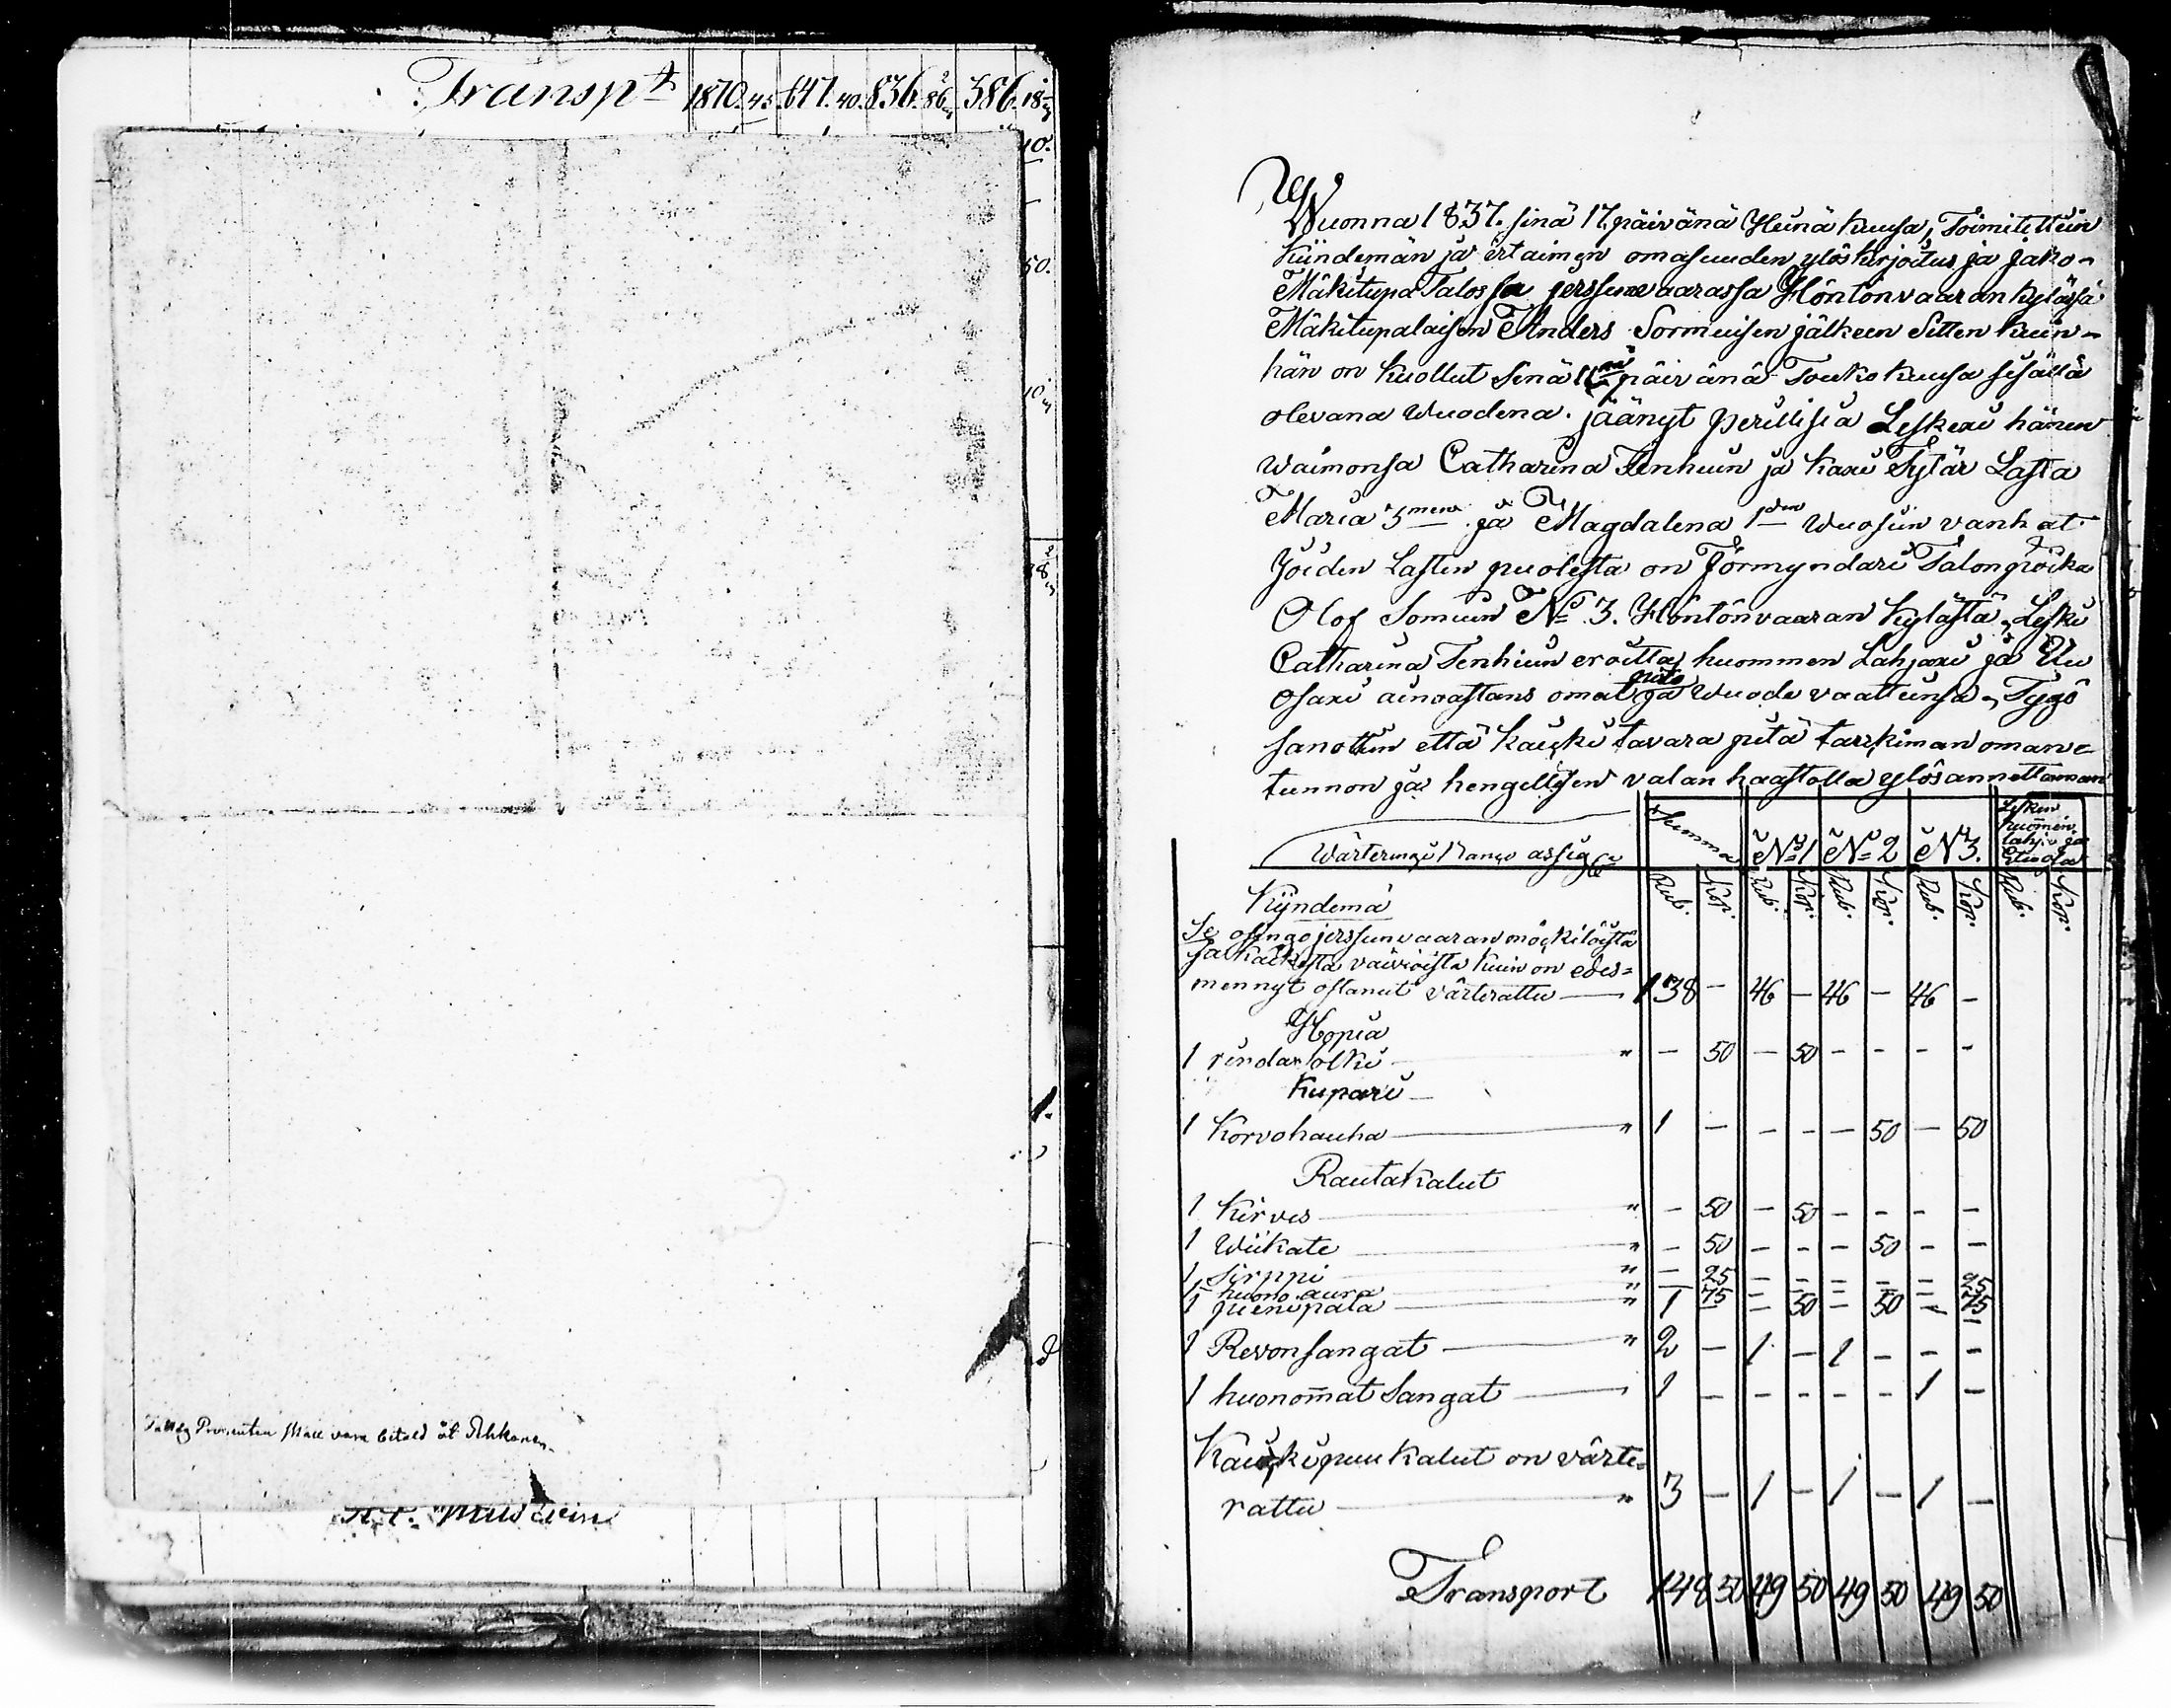 Transpt 1870. 45. 647. 40. 836. 86 2/7 386. 18 2/7
10.
50.
10
1.
Fattig Procenten skall vara betald åt Ahkanen
Wuonna 1837. sinä 17. päivänä Heinä kuusa, Toimitettiin
kiindemän ja irtaimen omasuuden ylöskirjoitus ja jako
Mäkitupa Talossa jerssunvaarassa Höntönvaaran kylässä
Mäkitupalaisen Anders Sormuisen jälkeen Sitten kuin
hän on kuollut Sinä 11nä päivänä Toukokuusa sisällä
olevana Wuodena. jäänyt perillisiä Leskexi hänen
waimonsa Catharina Tenhuin ja kaxi Tytär Lasta
Maria 3men ja Magdalena 1den Wuosiin vanhat
Joiden Lasten puolesta on Förmyndäri Talonpoika
Olof Somuin No 3. Höntönvaaran kylästä, Leski
Catharina Tenhiun eroitta huommen Lahjaxi ja Etu
Osaxi ainoastans omat pito ja Wuode vaattiinsa, Tygö
sanottiin että kaicki tavara pitä tarkiman oman
tunnon ja hengellisen valan haastolla ylösannettaman
Wärteringi Banco assign:
Summa No 1 No 2 No 3. Lesken huomen lahja ja Etuosa
Rub: Kop: Rub: Kop: Rub: Kop: Rub: Kop: Rub: Kop:
Kijndemä
Se osingo jerssunvaaran möckilöistä
ja kaickista väivioista kuin on edes=
mennyt ostanut värterattu — 138 — 46 — 46 — 46 —
Hopia
1 rindasolki " — 50 — 50 — — — —
Kupari
1 Korvohauha " 1 — — — — 50 — 50
Rautakalut
1 Kirves " — 50 — 50 — — — —
1 Wiikate " — 50 — — — 50 — —
1 Sirppi " — 25 — — — — — 25
1 huono aura
1 pieni pata " 1 75 — 50 — 50 — 75
1 Revonsangat " 2 — 1 — 1 — — —
1 huonomat Sangat 1 — — — — — 1 —
Kaicki puukalut on värte=
rattu " 3 — 1 — 1 — 1 —
Transport 148 50 49 50 49 50 49 50